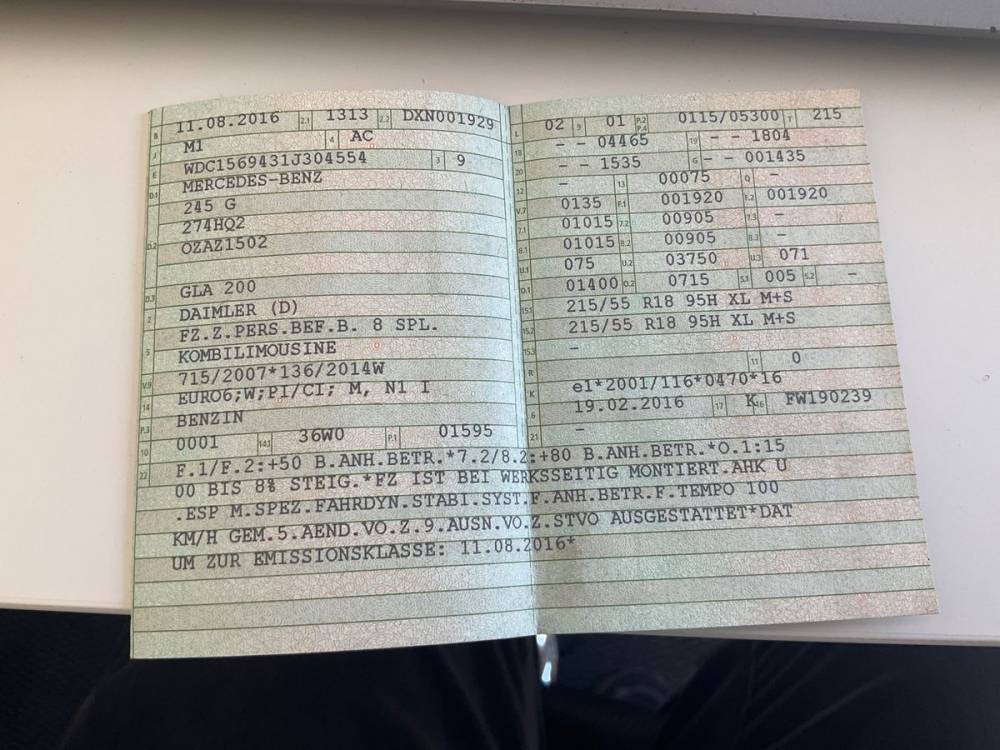 B 11.08.2016 2.1 1313 2.2 DXN001929
J M1 4 AC
E WDC1569431J304554 3 9
D.1 MERCEDES-BENZ
245 G
D.2 274HQ2
OZAZ1502
D.3 GLA 200
2 DAIMLER (D)
5 FZ.Z.PERS.BEF.B. 8 SPL.
KOMBILIMOUSINE
V.9 715/2007*136/2014W
14 EURO6;W;PI/CI; M, N1 I
P.3 BENZIN
10 0001 14.1 36W0 P.1 01595
L 02 9 01 P.2 P.4 0115/05300 T 215
18 - - 04465 19 - - 1804
20 - - 1535 G - - 001435
12 - 13 00075 Q -
V.7 0135 F.1 001920 F.2 001920
7.1 01015 7.2 00905 7.3 -
8.1 01015 8.2 00905 8.3 -
U.1 075 U.2 03750 U.3 071
O.1 01400 O.2 0715 S.1 005 S.2 -
15.1 215/55 R18 95H XL M+S
15.2 215/55 R18 95H XL M+S
15.3 -
R 11 0
K e1*2001/116*0470*16
6 19.02.2016 17 K 16 FW190239
21 -
22 F.1/F.2:+50 B.ANH.BETR.*7.2/8.2:+80 B.ANH.BETR.*O.1:15
00 BIS 8% STEIG.*FZ IST BEI WERKSSEITIG MONTIERT.AHK U
.ESP M.SPEZ.FAHRDYN.STABI.SYST.F.ANH.BETR.F.TEMPO 100
KM/H GEM.5.AEND.VO.Z.9.AUSN.VO.Z.STVO AUSGESTATTET*DAT
UM ZUR EMISSIONSKLASSE: 11.08.2016*